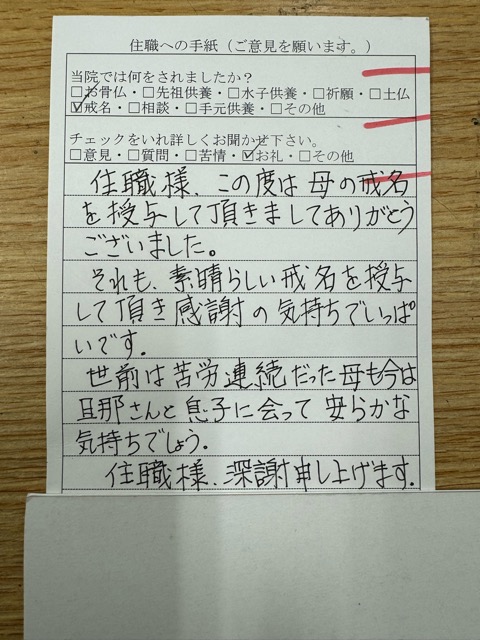 住職への手紙（ご意見を願います。）
当院では何をされましたか？
□お骨仏・□先祖供養・□水子供養・□祈願・□土仏
☑戒名・□相談・□手元供養・□その他
チェックをいれ詳しくお聞かせ下さい。
□意見・□質問・□苦情・☑お礼・□その他
住職様、この度は母の戒名
を授与して頂きましてありがとう
ございました。
それも、素晴らしい戒名を授与
して頂き感謝の気持ちでいっぱ
いです.
世前は苦労連続だった母も今は
旦那さんと息子に会って安らかな
気持ちでしょう.
住職様、深謝申し上げます.